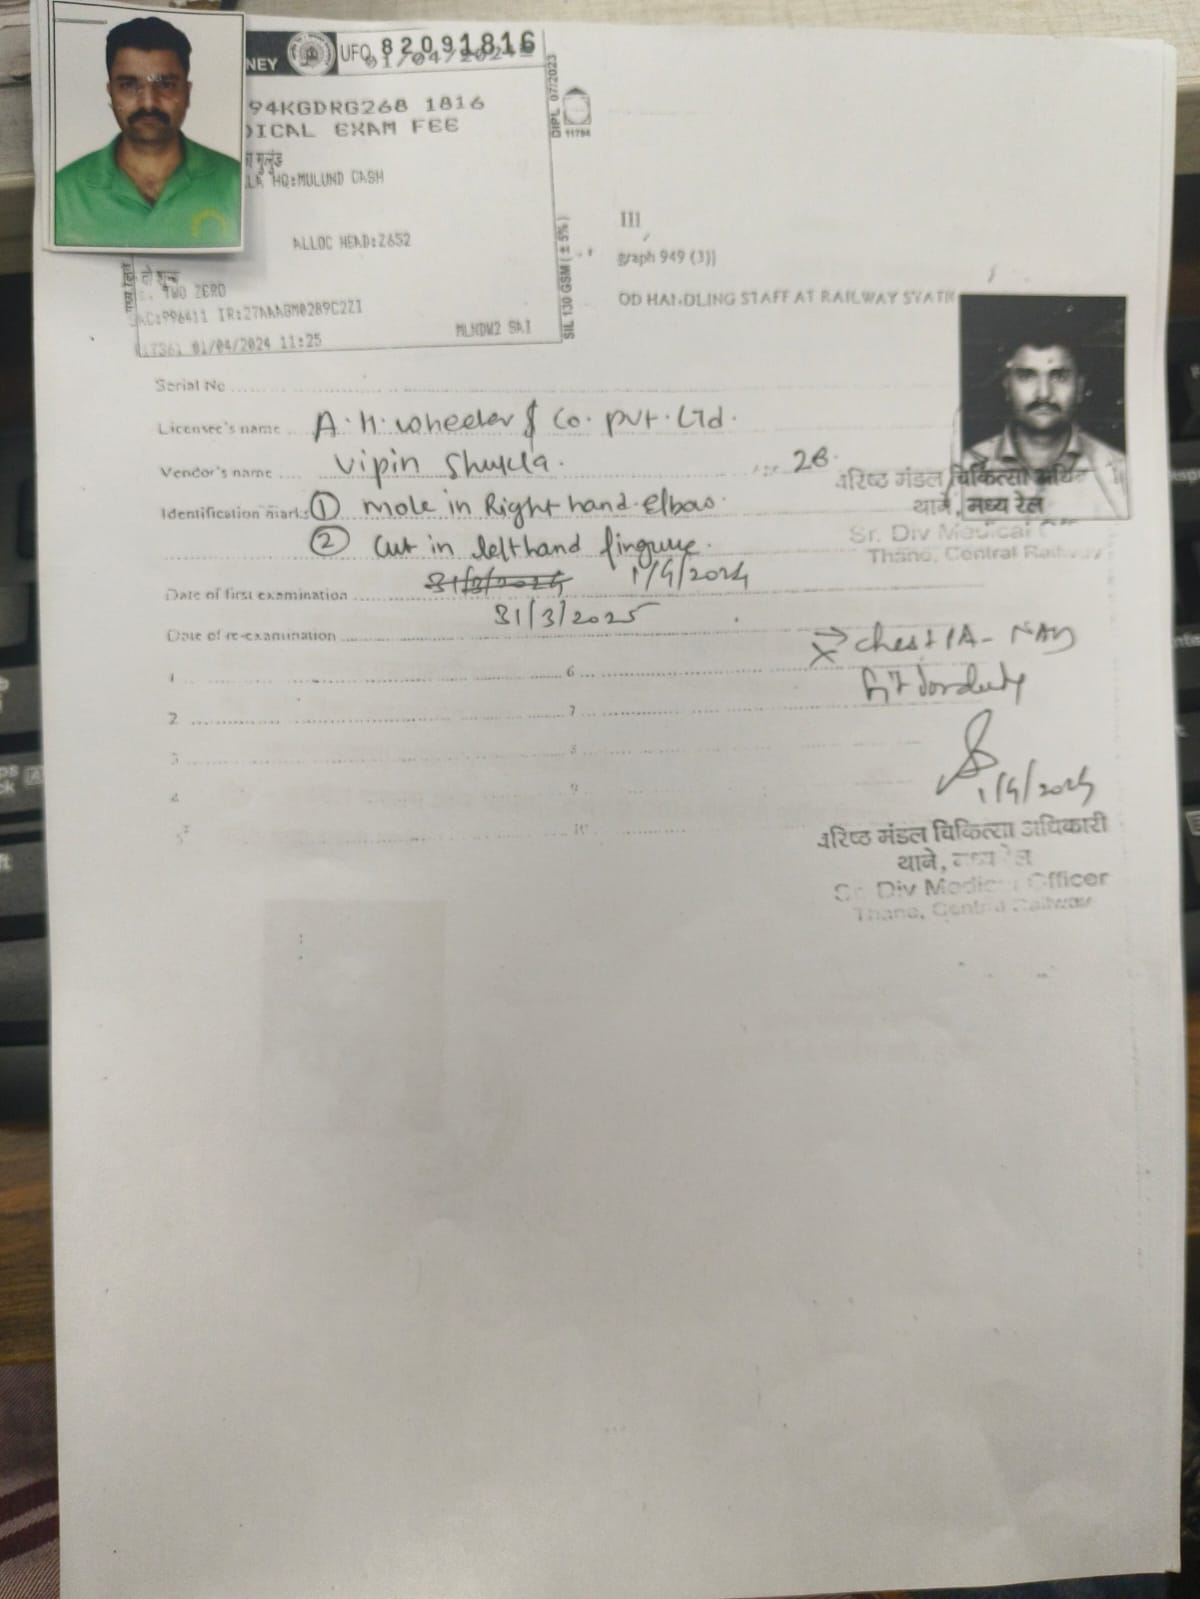 NEY UFQ 82091816
94KGDRG268 1816
DICAL EXAM FEE
HQ:MULUND CASH
ALLOC HEAD:Z652
TWO ZERO
AC:996411 IR:27AAAGM0289C2Z1
MLNDW2 SAI
01/04/2024 11:25
DIPL 07/2023
11794
SIL 130 GSM (± 5%)
III
graph 949 (3)]
OD HANDLING STAFF AT RAILWAY
Serial No
Licensee's name A. H. Wheeler & Co. pvt. Ltd.
Vendor's name Vipin Shukla. 28.
Identification marks ① mole in Right hand Elbow.
② Cut in lefthand fingure.
Date of first examination 31/3/2024 1/4/2024
31/3/2025
Date of re-examination
1 6
2 7
3 8
4 9
5 10
वरिष्ठ मंडल चिकित्सा
थाने, मध्य रेल
Sr. Div Medical
Thane, Central Railway
chest PA - NAD
fit for duty
1/4/2024
वरिष्ठ मंडल चिकित्सा अधिकारी
थाने, मध्य रेल
Sr. Div Medical Officer
Thane, Central Railway